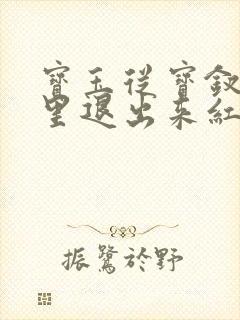 寶玉從寶釵
里退出來紅
振鷺於野